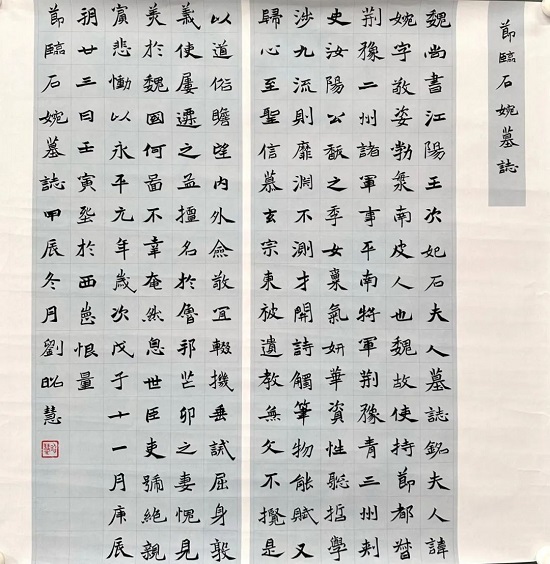 節臨石婉墓誌
魏尚書江陽王次妃石夫人墓誌銘夫人諱
婉字敬姿勃海南皮人也魏故使持節都督
荊豫二州諸軍事平南將軍荊豫青三州刺
史汝陽公馛之季女稟氣妍華資性聡哲學
涉九流則靡淵不測才開詩觸筆物能賦又
歸心至聖信慕玄宗東被遺教無文不攬是
以道俗瞻望內外僉敬宜輟機垂試屈身敦
義使屢遷之孟擅名於魯邦芒卯之妻愧見
美於魏國何啚不幸奄然忽世臣吏號絕親
賓悲慟以永平元年歲次戊子十一月庚辰
朔廿三日壬寅塟於西崗恨量
節臨石婉墓誌甲辰冬月劉昭慧